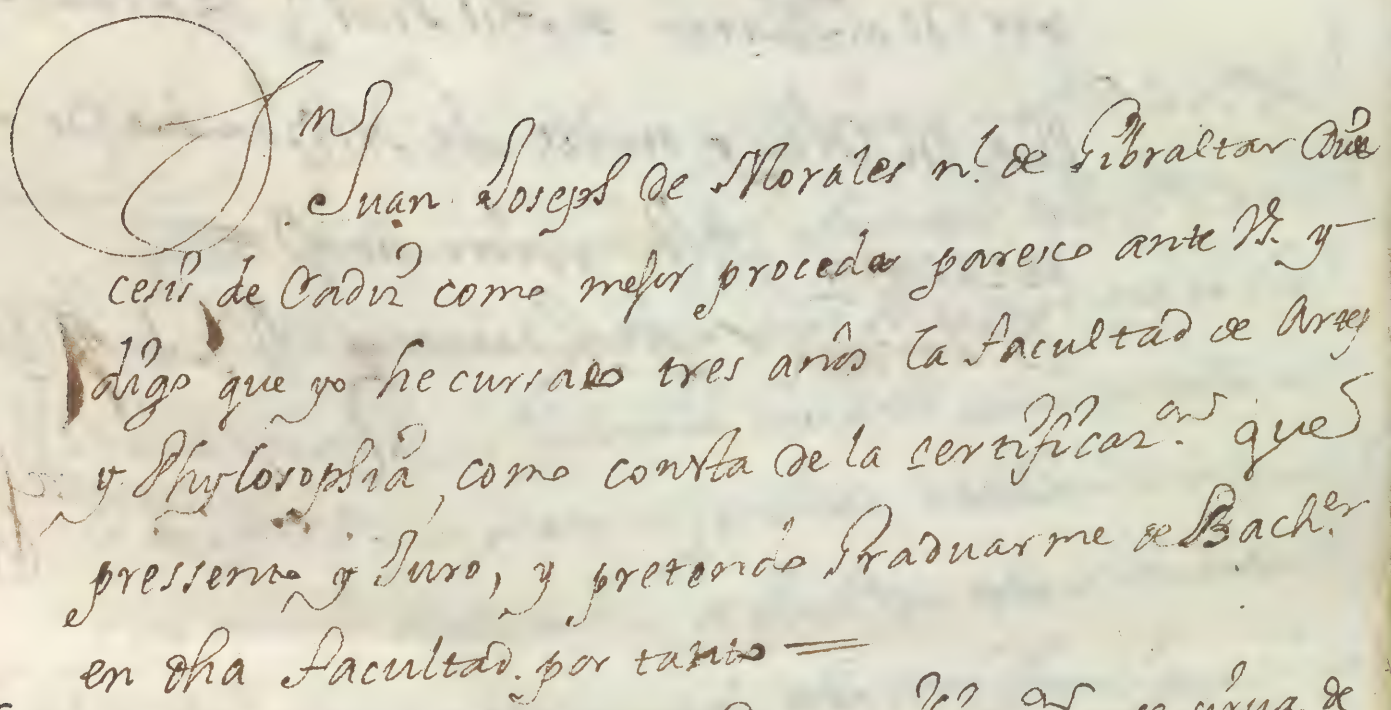 Sr
Juan Joseph de Morales n.l de Gibraltar Dio
cesis de Cadiz como mejor proceda paresco ante VS. y
digo que yo he cursado tres años la facultad de Artes
y Phylosophia, como consta de la certificaz.on que
pressento y Juro, y pretendo Graduarme de Bach.er
en dha facultad. por tanto =
sirva de